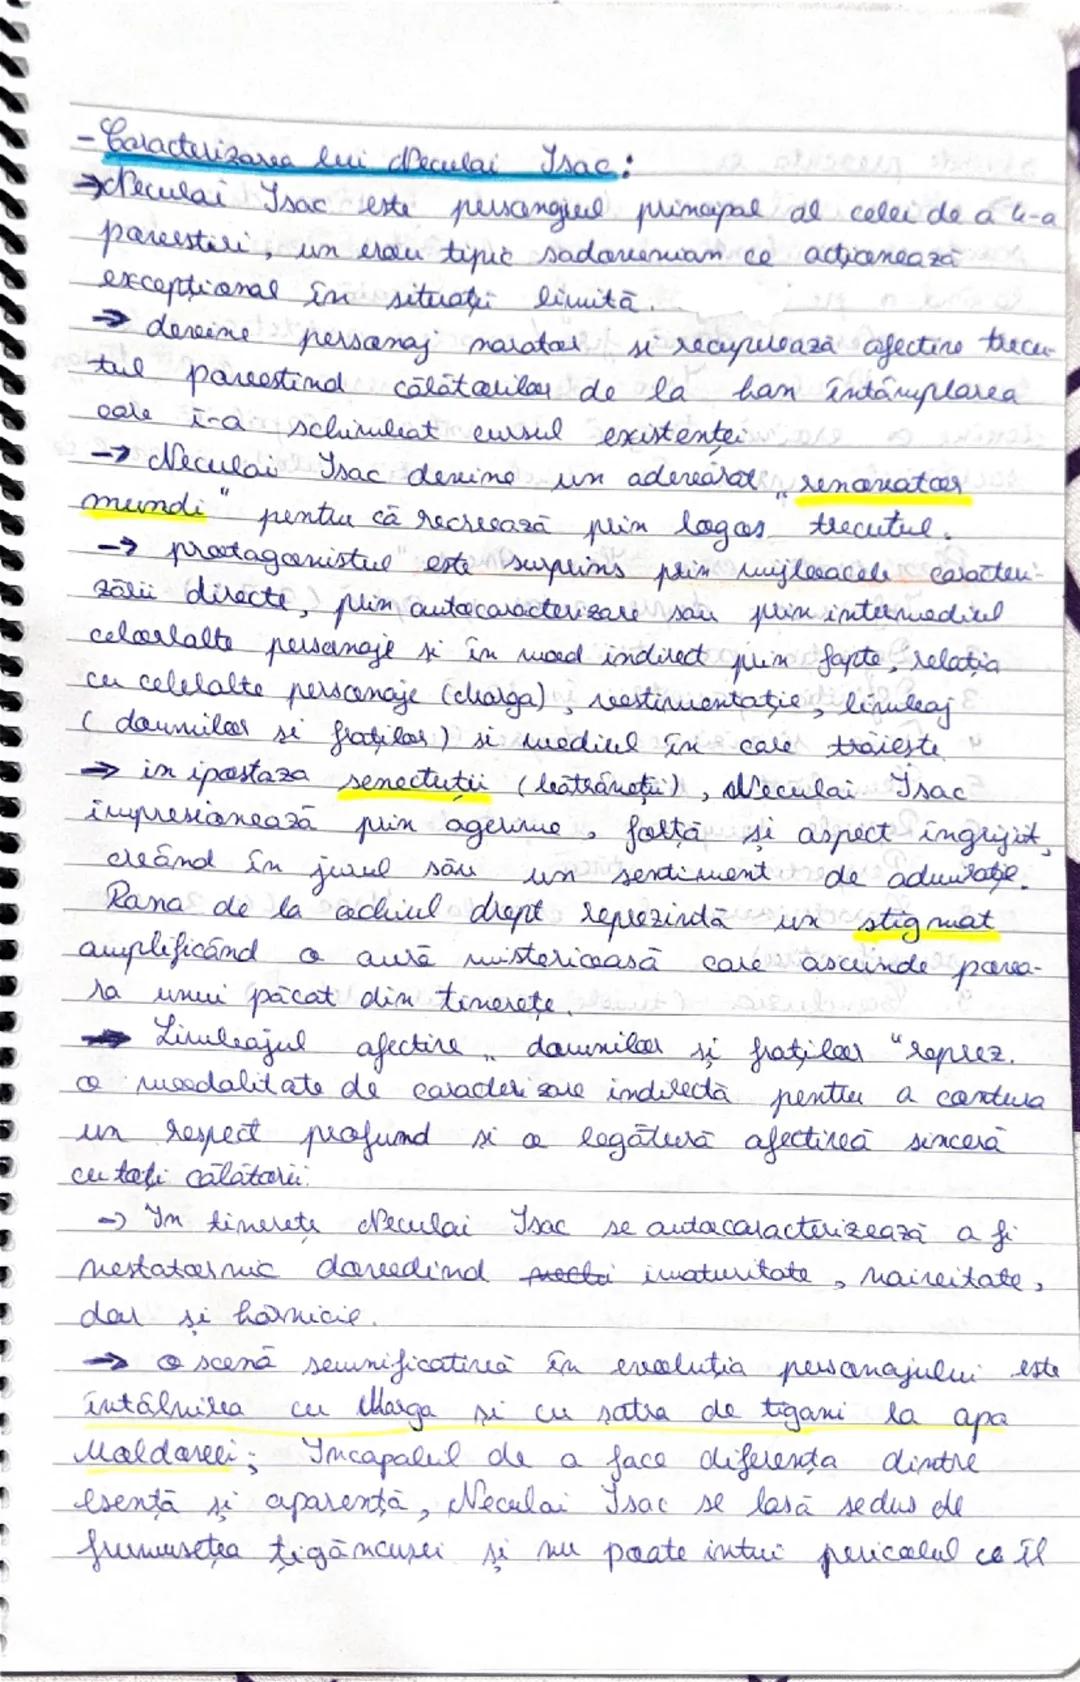 - Caracterizarea lui Neculai Isac:
→ Neculai Isac este personajul principal al celei de a 4-a
povestiri, un erou tipic sadovenian ce acționează
excepțional în situații limită.
→ devine personaj narator și recuperează afectiv trecu-
tul povestind călătorilor de la han întâmplarea
care i-a schimbat cursul existenței
→ Neculai Isac devine un adevărat „renovator
mundi" pentru că recreează prin logos trecutul.
→ protagonistul este surprins prin mijloacele caracteri-
zării directe, prin autocaracterizare sau prin intermediul
celorlalte personaje și în mod indirect prin fapte, relația
cu celelalte personaje (Marga), vestimentație, limbaj
(domnilor și fraților) și mediul în care trăiește
→ in ipostaza senectuții (bătrâneții), Neculai Isac
impresionează prin agerime, forță și aspect îngrijit,
creând în jurul său un sentiment de admirație.
Rana de la ochiul drept reprezintă un stigmat
amplificând o aură misterioasă care ascunde pova-
ra unui păcat din tinerețe.
→ Limbajul afectiv „domnilor și fraților" reprez.
o modalitate de caracterizare indirectă pentru a contura
un respect profund și o legătură afectivă sinceră
cu toți călătorii.
→ In tinerețe Neculai Isac se autocaracterizează a fi
nestatornic dovedind imaturitate, naivitate,
dar și hărnicie.
→ o scenă semnificativă în evoluția personajului este
întâlnirea cu Marga și cu șatra de țigani la apa
Moldovei; Incapabil de a face diferența dintre
esență și aparență, Neculai Isac se lasă sedus de
frumusețea țigăncușei și nu poate intui pericolul ce îl